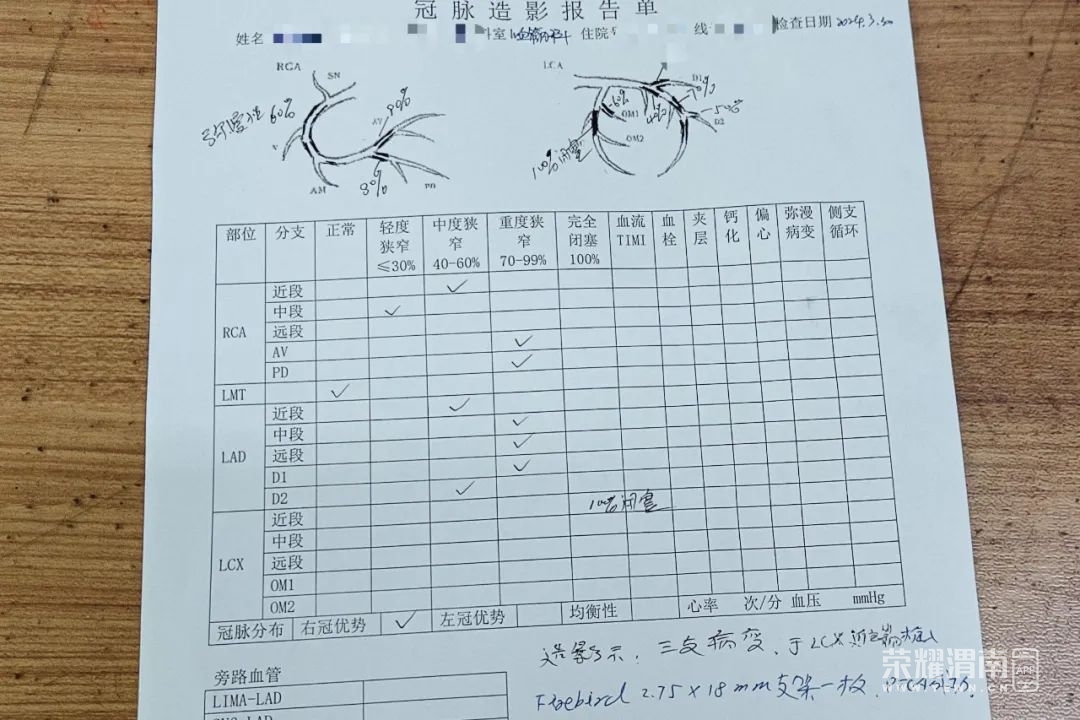 冠脉造影报告单
姓名 科室 住院 线 检查日期 2024.3.20
RCA
SN
60%
AV
90%
V
AM
90%
PD
LCA
D1
70%
60%
OM1
40%
50%
D2
OM2
100%闭塞
部位 分支 正常 轻度狭窄≤30% 中度狭窄40-60% 重度狭窄70-99% 完全闭塞100% 血流TIMI 血栓 夹层 钙化 偏心 弥漫病变 侧支循环
RCA 近段 ✓
中段 ✓
远段
AV ✓
PD ✓
LMT ✓
LAD 近段 ✓
中段 ✓
远段 ✓
D1 ✓
D2 ✓
LCX 近段 100%闭塞
中段
远段
OM1
OM2
冠脉分布 右冠优势 ✓ 左冠优势 均衡性 心率 次/分 血压 mmHg
造影示：三支病变，于LCX近端植入
Firebird 2.75×18mm支架一枚
旁路血管
LIMA-LAD
荣耀渭南 APP